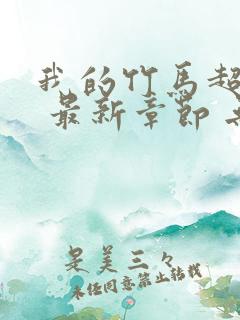 我的竹马超
最新章节
是美三々
未经同意禁止转载